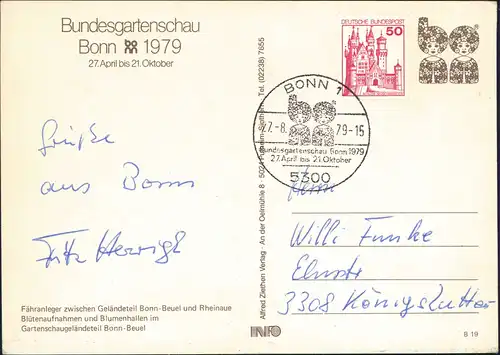 Bundesgartenschau
Bonn 1979
27. April bis 21. Oktober
DEUTSCHE BUNDESPOST
50
BONN 1
27.-8. 79-15
Bundesgartenschau Bonn 1979
27. April bis 21. Oktober
5300
Grüße
aus Bonn
Fritz
Alfred Ziethen Verlag · An der Oelmühle 8 · Tel. (02238) 7655
Herrn
Willi Funke
3308 Königslutter
Fähranleger zwischen Geländeteil Bonn-Beuel und Rheinaue
Blütenaufnahmen und Blumenhallen im
Gartenschaugeländeteil Bonn-Beuel
INFO
B 19